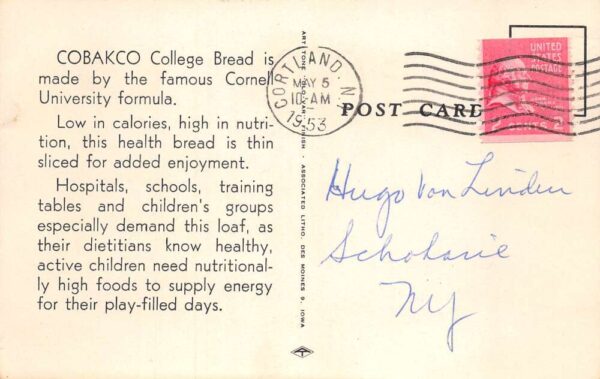 COBAKCO College Bread is
made by the famous Cornell
University formula.
Low in calories, high in nutri-
tion, this health bread is thin
sliced for added enjoyment.
Hospitals, schools, training
tables and children's groups
especially demand this loaf, as
their dietitians know healthy,
active children need nutritional-
ly high foods to supply energy
for their play-filled days.
FINISH - ASSOCIATED LITHO. DES MOINES 9, IOWA
CORTLAND, N.
MAY 5
10-AM
1953
UNITED
STATES
POSTAGE
CENTS 2
POST CARD
Hugo Von Linden
Schoharie
NY